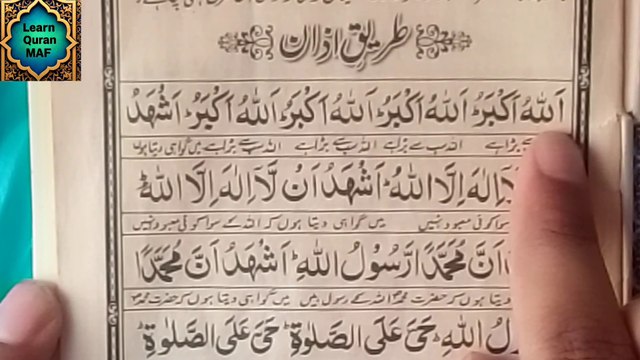 Learn
Quran
MAF
طریق اذان
اَللهُ اَكْبَرُ اَللهُ اَكْبَرُ اَللهُ اَكْبَرُ اَللهُ اَكْبَرُ اَشْهَدُ
بڑا ہے اللہ سب سے بڑا ہے اللہ سب سے بڑا ہے اللہ سب سے بڑا ہے میں گواہی دیتا ہوں
اِلٰهَ اِلَّا اللهُ اَشْهَدُ اَنْ لَّا اِلٰهَ اِلَّا اللهُ
سوا کوئی معبود نہیں میں گواہی دیتا ہوں کہ اللہ کے سوا کوئی معبود نہیں
اَنَّ مُحَمَّدًا رَّسُوْلُ اللهِ اَشْهَدُ اَنَّ مُحَمَّدًا
دیتا ہوں کہ حضرت محمد اللہ کے رسول ہیں میں گواہی دیتا ہوں کہ حضرت محمد
اللهِ حَیَّ عَلَی الصَّلٰوةِ حَیَّ عَلَی الصَّلٰوةِ